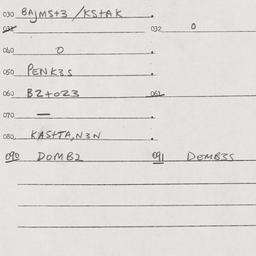 030 BAJMS+3 /KS+AK
032 0
040 0
050 PENK3S
060 B2+023 062
070 —
080 KAS+TA,N3N
090 DOMB2 091 DEMB3S